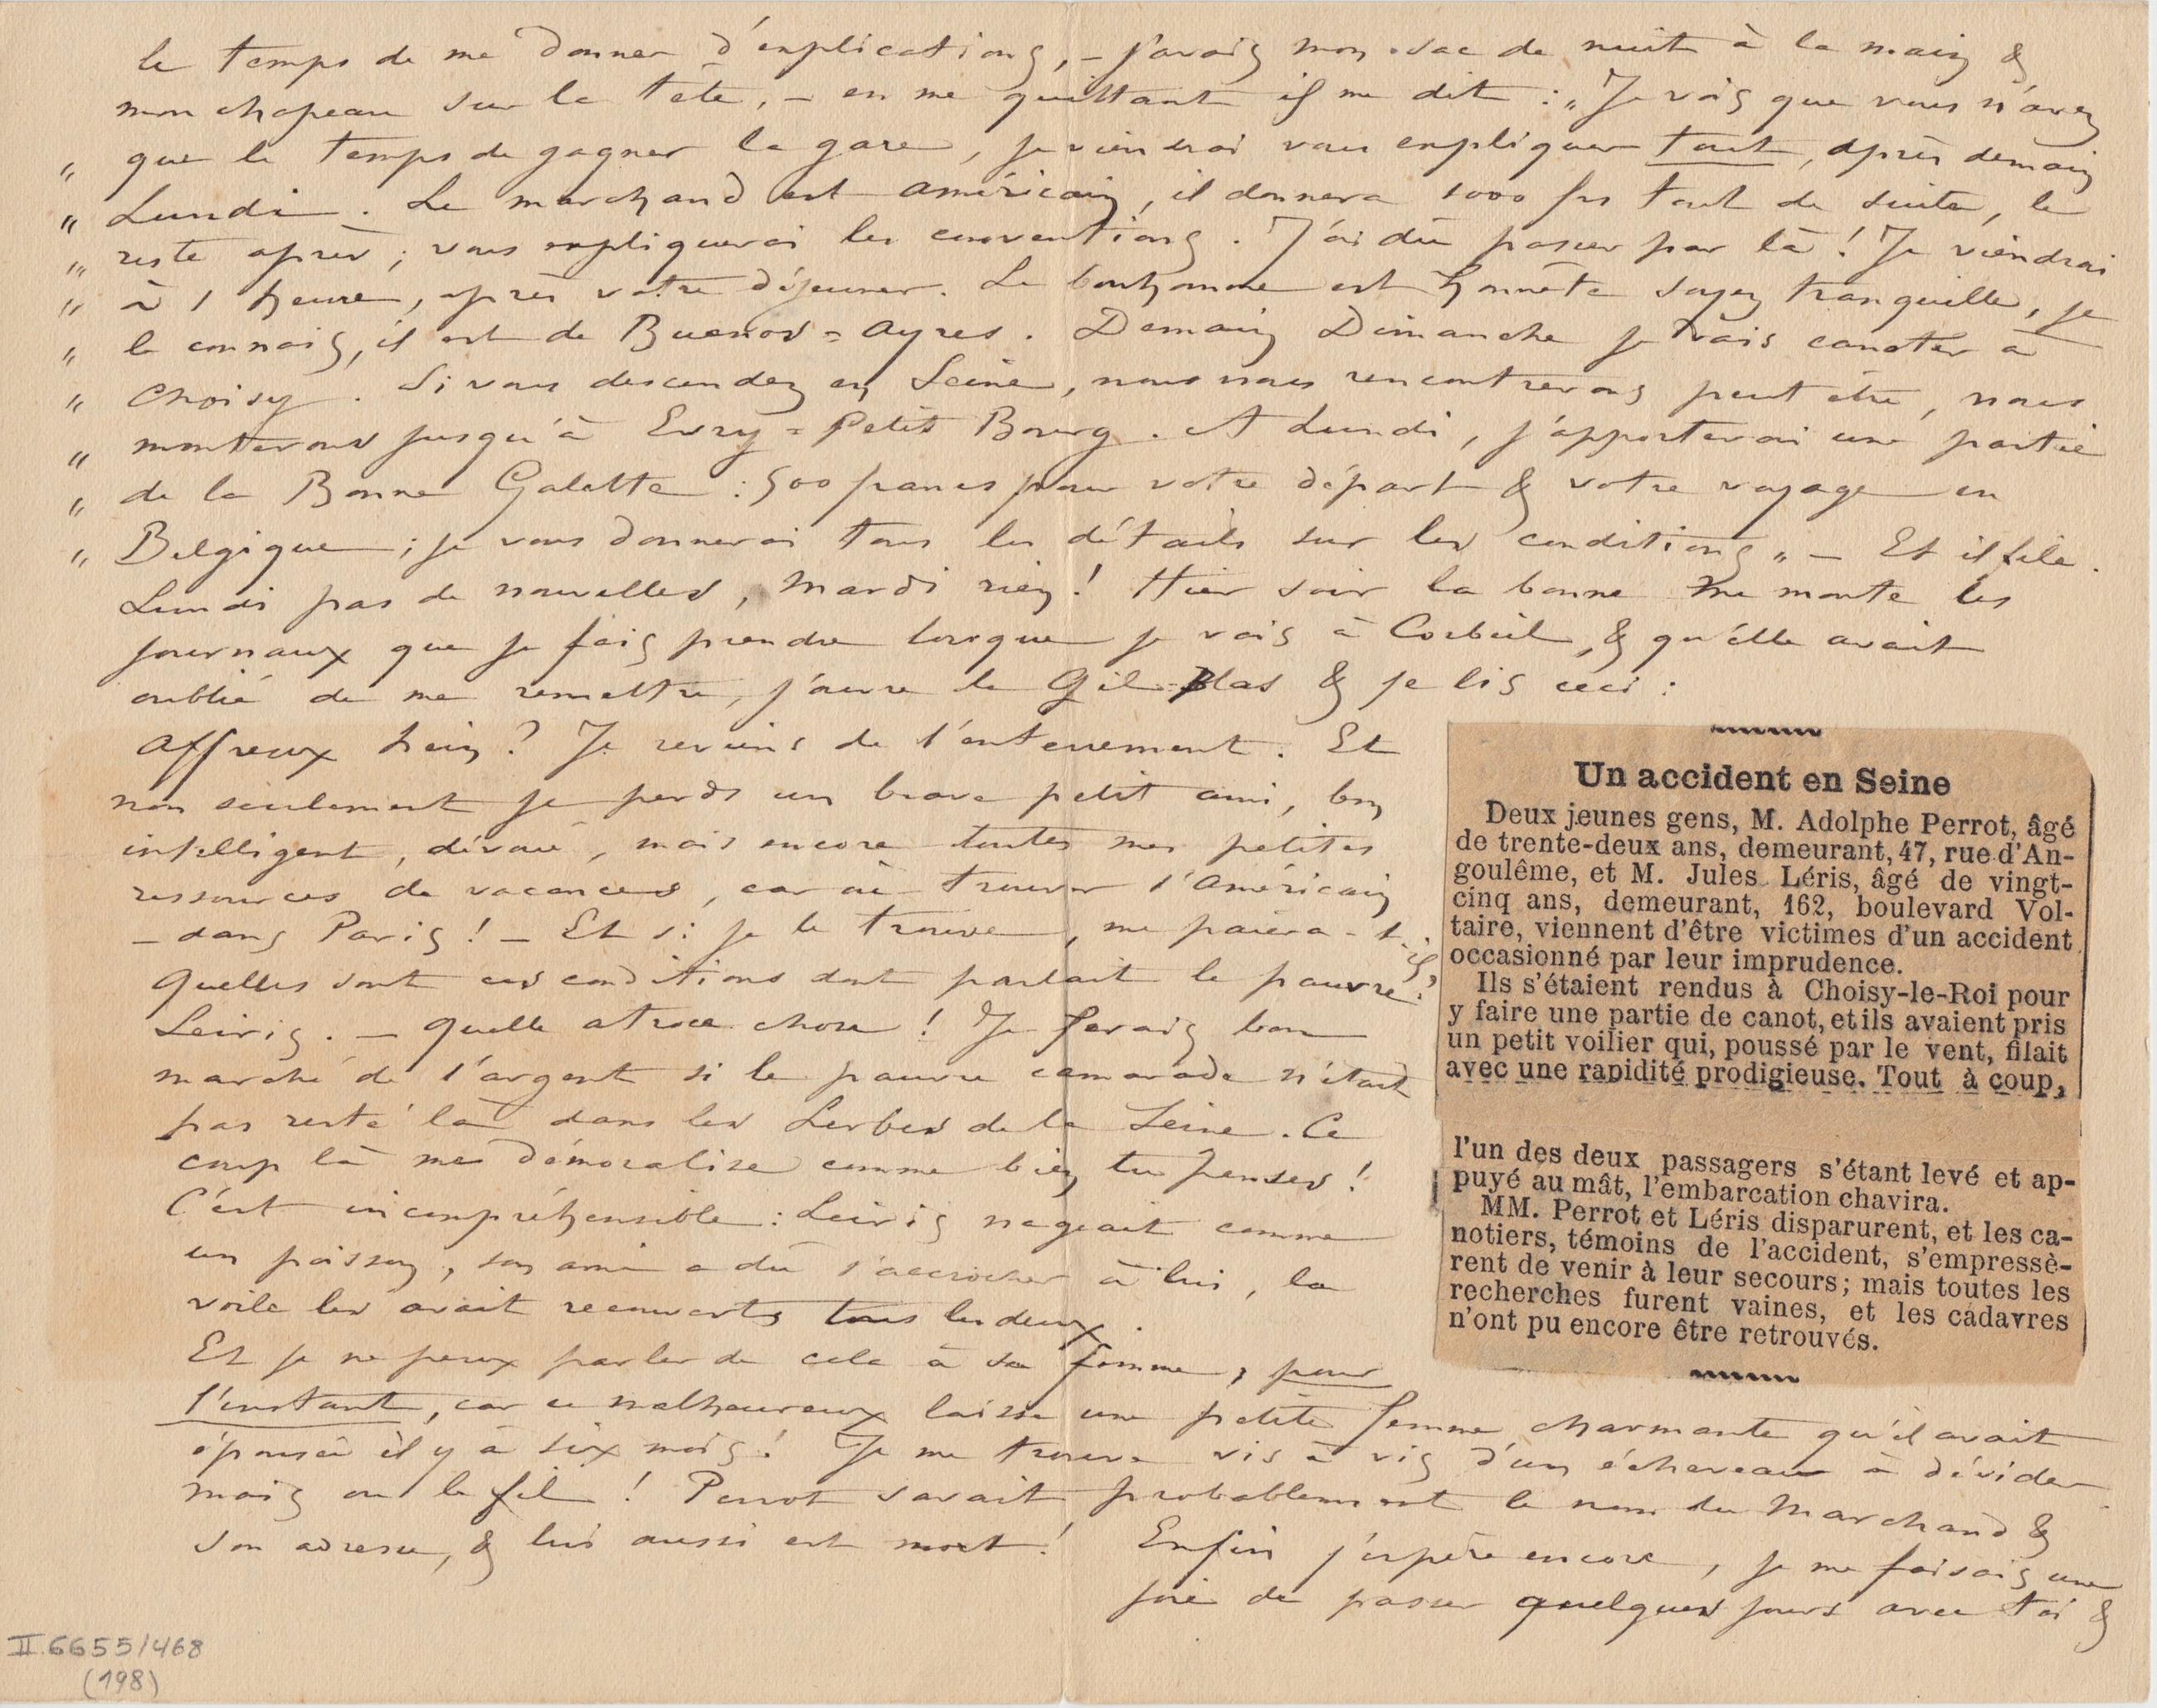 le temps de me donner d'explications, – j'avais mon sac de nuit à la main &
mon chapeau sur la tête, – en me quittant il me dit : „ Je vois que vous n'avez
„ que le temps de gagner la gare, je viendrai vous expliquer tout, après demain
„ Lundi. Le marchand est américain, il donnera 1000 frs tout de suite, le
„ reste après ; vous expliquerai les conventions. J'ai dû passer par là ! Je viendrai
„ à 1 heure, après votre déjeuner. Le bonhomme est honnête soyez tranquille, je
„ le connais, il est de Buenos=Ayres. Demain Dimanche je vais canoter à
„ Choisy. Si vous descendez en Seine, nous nous rencontrerons peut être, nous
„ monterons jusqu'à Evry=Petit Bourg. A Lundi, j'apporterai une partie
„ de la Bonne Galette : 500 francs pour votre départ & votre voyage en
„ Belgique ; je vous donnerai tous les détails sur les conditions „ – Et il file.
Lundi pas de nouvelles, Mardi rien ! Hier soir la bonne me monte les
journaux que je fais prendre lorsque je vais à Corbeil, & qu'elle avait
oublié de me remettre, j'ouvre le Gil-Blas & je lis ceci :
Affreux hein ? Je reviens de l'enterrement. Et
non seulement je perds un brave petit ami, bon
intelligent, dévoué, mais encore toutes mes petites
ressources de vacances, car où trouver l'Américain
– dans Paris ! – Et si je le trouve, me paiera-t-il ?
Quelles sont ces conditions dont parlait le pauvre
Leiris. – Quelle atroce chose ! Je ferais bon
marché de l'argent si le pauvre camarade n'était
pas resté là dans les herbes de la Seine. Ce
coup là me démoralise comme bien tu penses !
C'est incompréhensible : Leiris nageait comme
un poisson, son ami a dû s'accrocher à lui, la
voile les avait recouverts tous les deux.
Et je ne peux parler de cela à sa femme, pour
l'instant, car ce malheureux laisse une petite femme charmante qu'il avait
épousée il y a six mois ! Je me trouve vis à vis d'un écheveau à dévider
mais où le fil ! Perrot savait probablement le nom du Marchand &
son adresse, & lui aussi est mort ! Enfin j'espère encore, je me faisais une
joie de passer quelques jours avec toi &
Un accident en Seine
Deux jeunes gens, M. Adolphe Perrot, âgé
de trente-deux ans, demeurant, 47, rue d'An-
goulême, et M. Jules Léris, âgé de vingt-
cinq ans, demeurant, 162, boulevard Vol-
taire, viennent d'être victimes d'un accident
occasionné par leur imprudence.
Ils s'étaient rendus à Choisy-le-Roi pour
y faire une partie de canot, et ils avaient pris
un petit voilier qui, poussé par le vent, filait
avec une rapidité prodigieuse. Tout à coup,
l'un des deux passagers s'étant levé et ap-
puyé au mât, l'embarcation chavira.
MM. Perrot et Léris disparurent, et les ca-
notiers, témoins de l'accident, s'empressè-
rent de venir à leur secours ; mais toutes les
recherches furent vaines, et les cadavres
n'ont pu encore être retrouvés.
II.6655/468
(198)